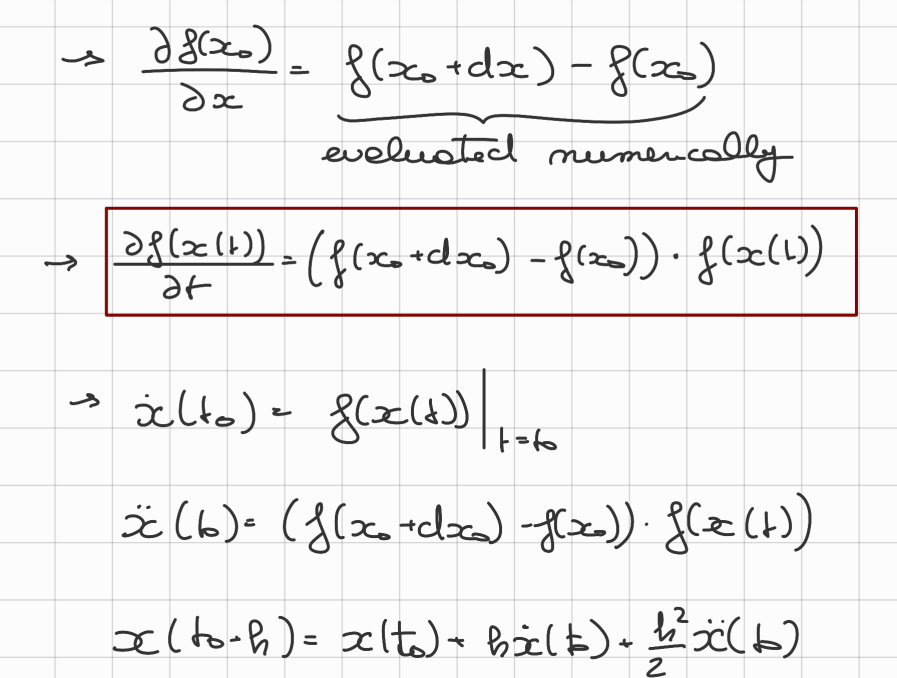 → ∂f(x₀)/∂x = f(x₀+dx) - f(x₀)
evaluated numerically
→ ∂f(x(t))/∂t = (f(x₀+dx₀) - f(x₀)) · f(x(t))
→ ẋ(t₀) = f(x(t))|t=t₀
ẍ(t₀) = (f(x₀+dx₀) - f(x₀)) · f(x(t))
x(t₀+h) = x(t₀) + hẋ(t₀) + h²/2 ẍ(t₀)